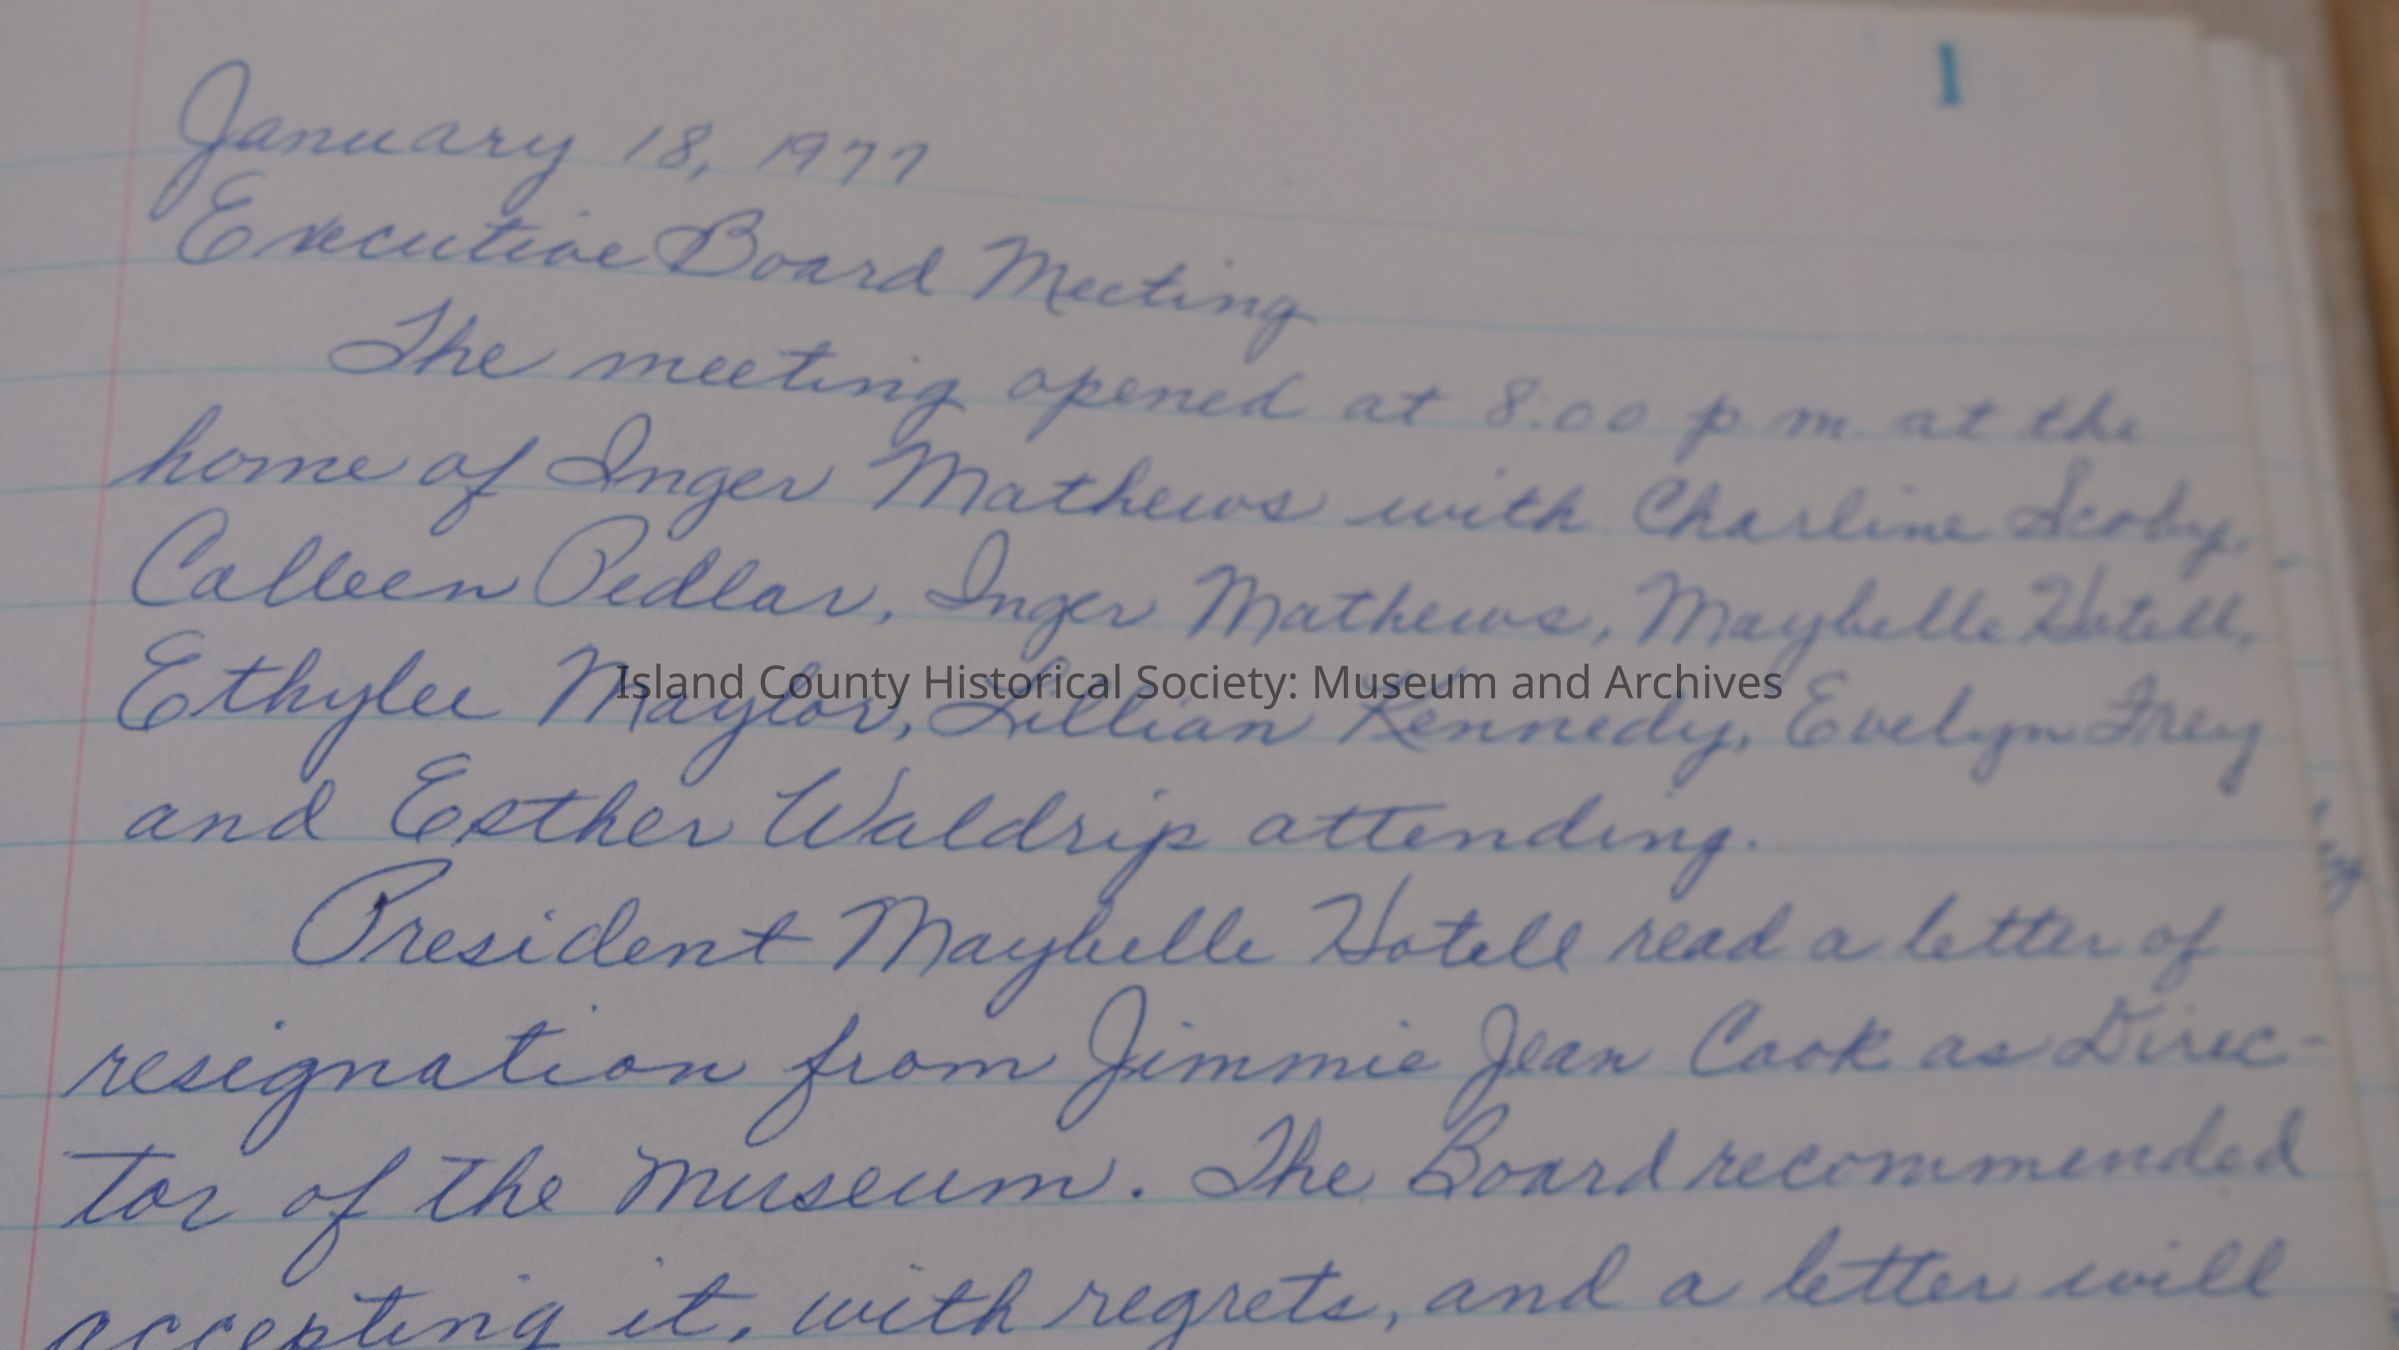 1
January 18, 1977
Executive Board Meeting
The meeting opened at 8:00 p.m. at the
home of Inger Mathews with Charline Scoby,
Calleen Pedlar, Inger Mathews, Maybelle Hotell,
Ethylee Maylor, Lillian Kennedy, Evelyn Frey
Island County Historical Society: Museum and Archives
and Esther Waldrip attending.
President Maybelle Hotell read a letter of
resignation from Jimmie Jean Cook as Direc-
tor of the museum. The Board recommended
accepting it, with regrets, and a letter will